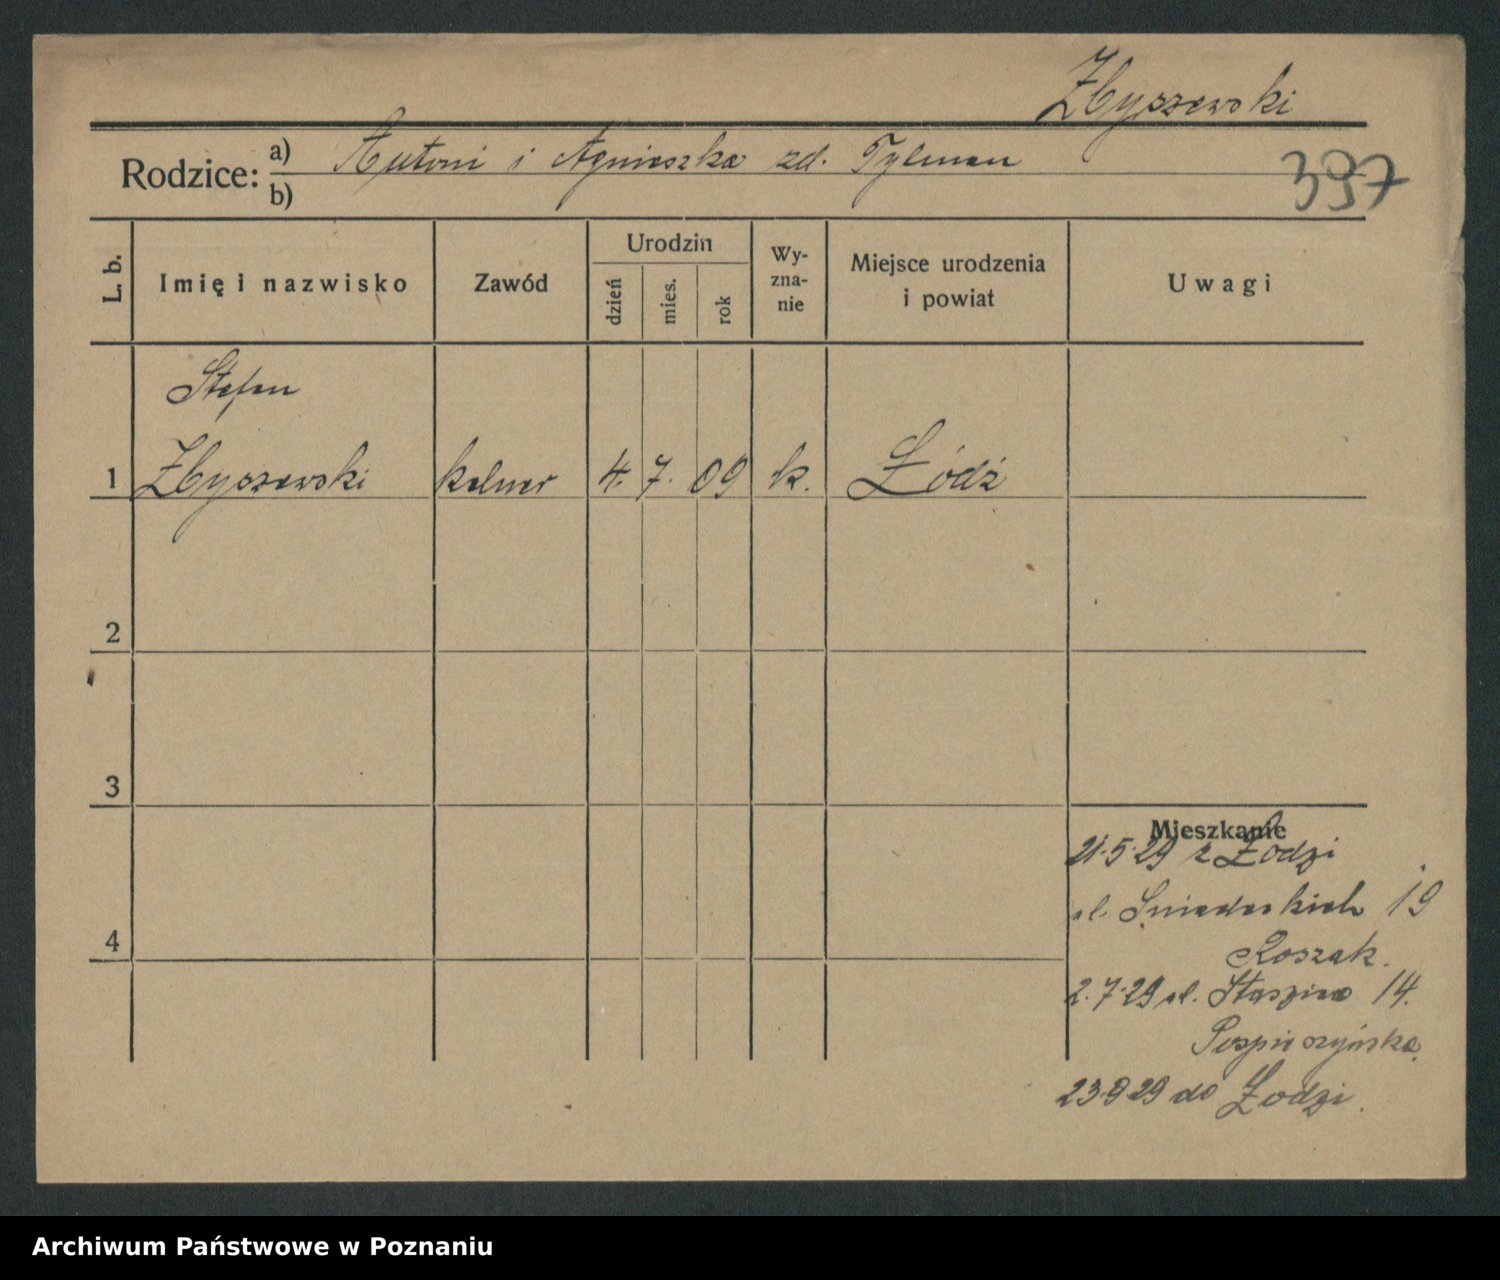 Zbyszewski
Rodzice: a) Antoni i Agnieszka zd. Tylman
b)
397
L. b.
Imię i nazwisko
Zawód
Urodzin
dzień
mies.
rok
Wy-
zna-
nie
Miejsce urodzenia
i powiat
Uwagi
Stefan
1 Zbyszewski kelner 4. 7. 09 k. Łódź
2
3
4
Mieszkanie
21.5.29 z Łodzi
ul. Śniadeckich 19
Koszak.
2.7.29 ul. Staszica 14.
23.9.29 do Łodzi.
Archiwum Państwowe w Poznaniu